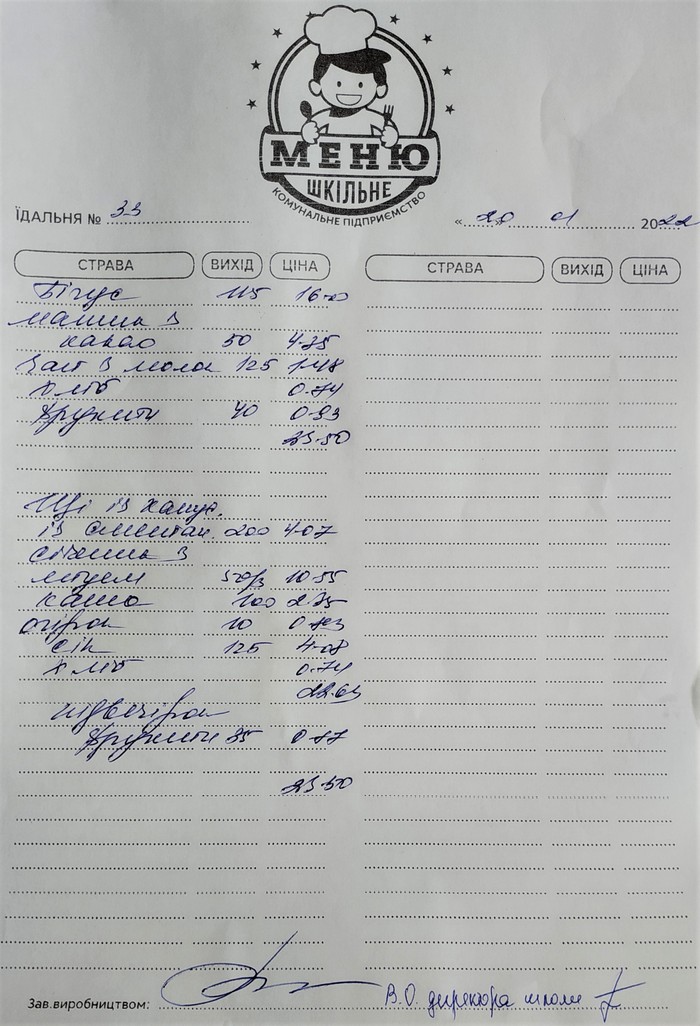 МЕНЮ
ШКІЛЬНЕ
КОМУНАЛЬНЕ ПІДПРИЄМСТВО
ЇДАЛЬНЯ № 33 «20» 01 2022
СТРАВА ВИХІД ЦІНА СТРАВА ВИХІД ЦІНА
Бігус 115 16-00
машик з
какао 50 4-35
част з молок 125 1-48
хліб 0-74
фрукти 40 0-93
23-50
Щі із капус.
із сметан. 200 4-07
січеник з
50/5 10-55
каша 100 2-35
огірок 10 0-83
сік 125 4-08
хліб 0-74
22-63
підвечірок
фрукти 35 0-87
23-50
Зав.виробництвом: В.О. директора школи